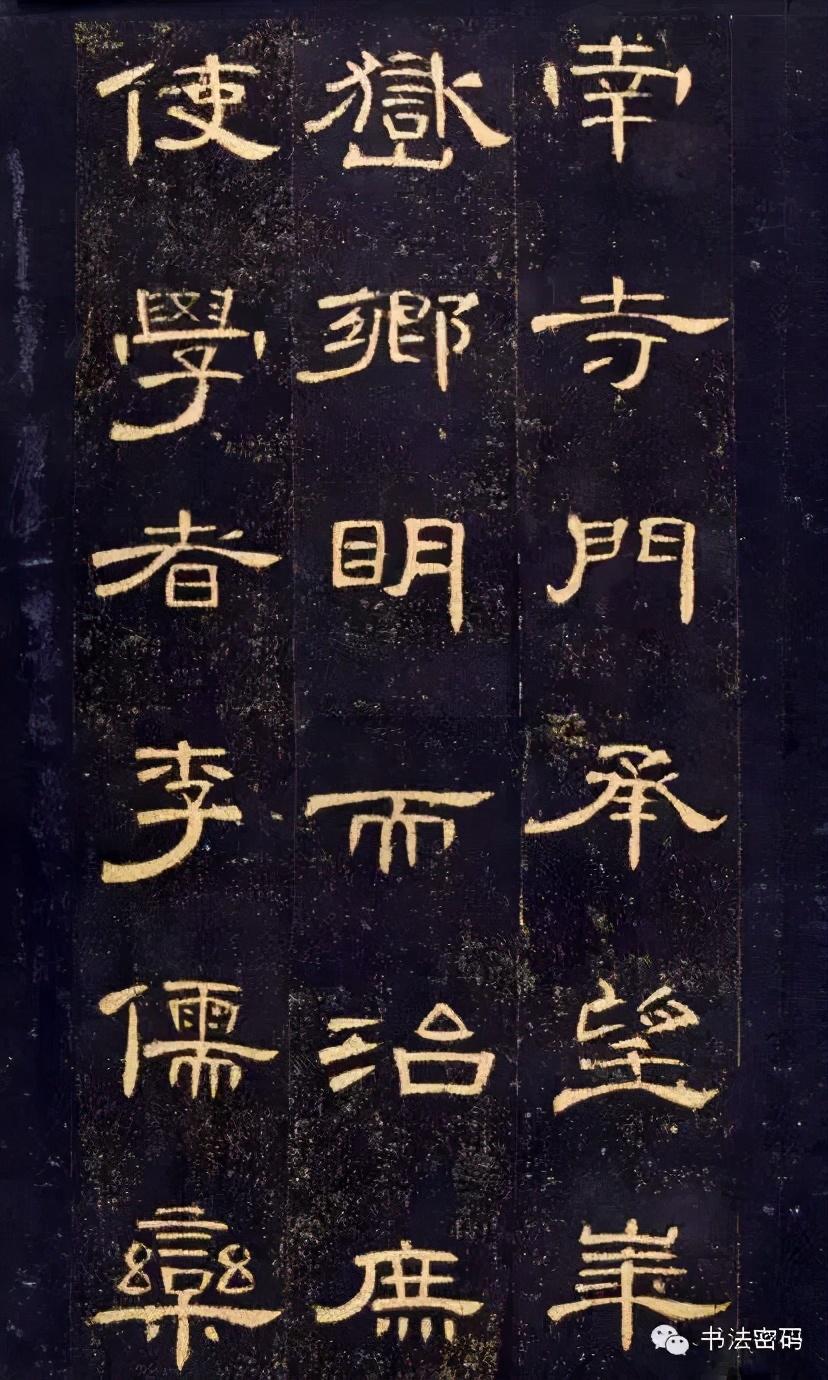 南寺門承望華
嶽鄉明而治庶
使學者李儒欒
书法密码